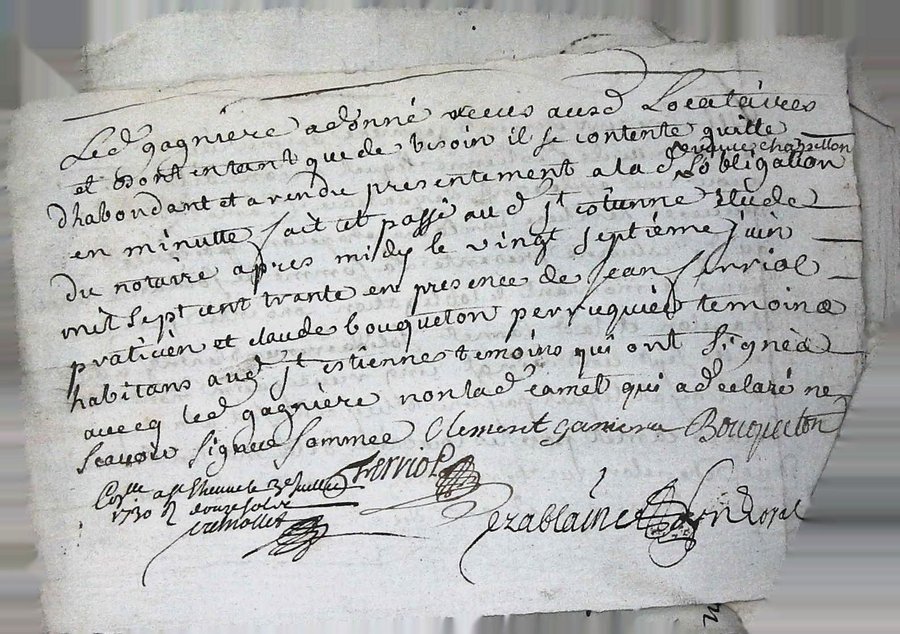 Led gagniere adonné veues ausd Locataires
et dont entant que de besoin il se contente quille
dhabondant et a rendu presentement a la d. L'obligation
en minutte fait et passé aud st etienne etude
du notaire apres midy le vingt septième juin
mil sept cent trante en presence de Jean ferriol
praticien et claude bouqueton perruquier temoins
habitans aud st estienne temoins qui ont signés
avecq led gagniere non lad camet qui a declaré ne
scavoir signer sommée Clement ganiere Bouqueton
ferriol
Collé a st Etienne le 3e juillet
1730 R douze sols
ezablaine nore Royal